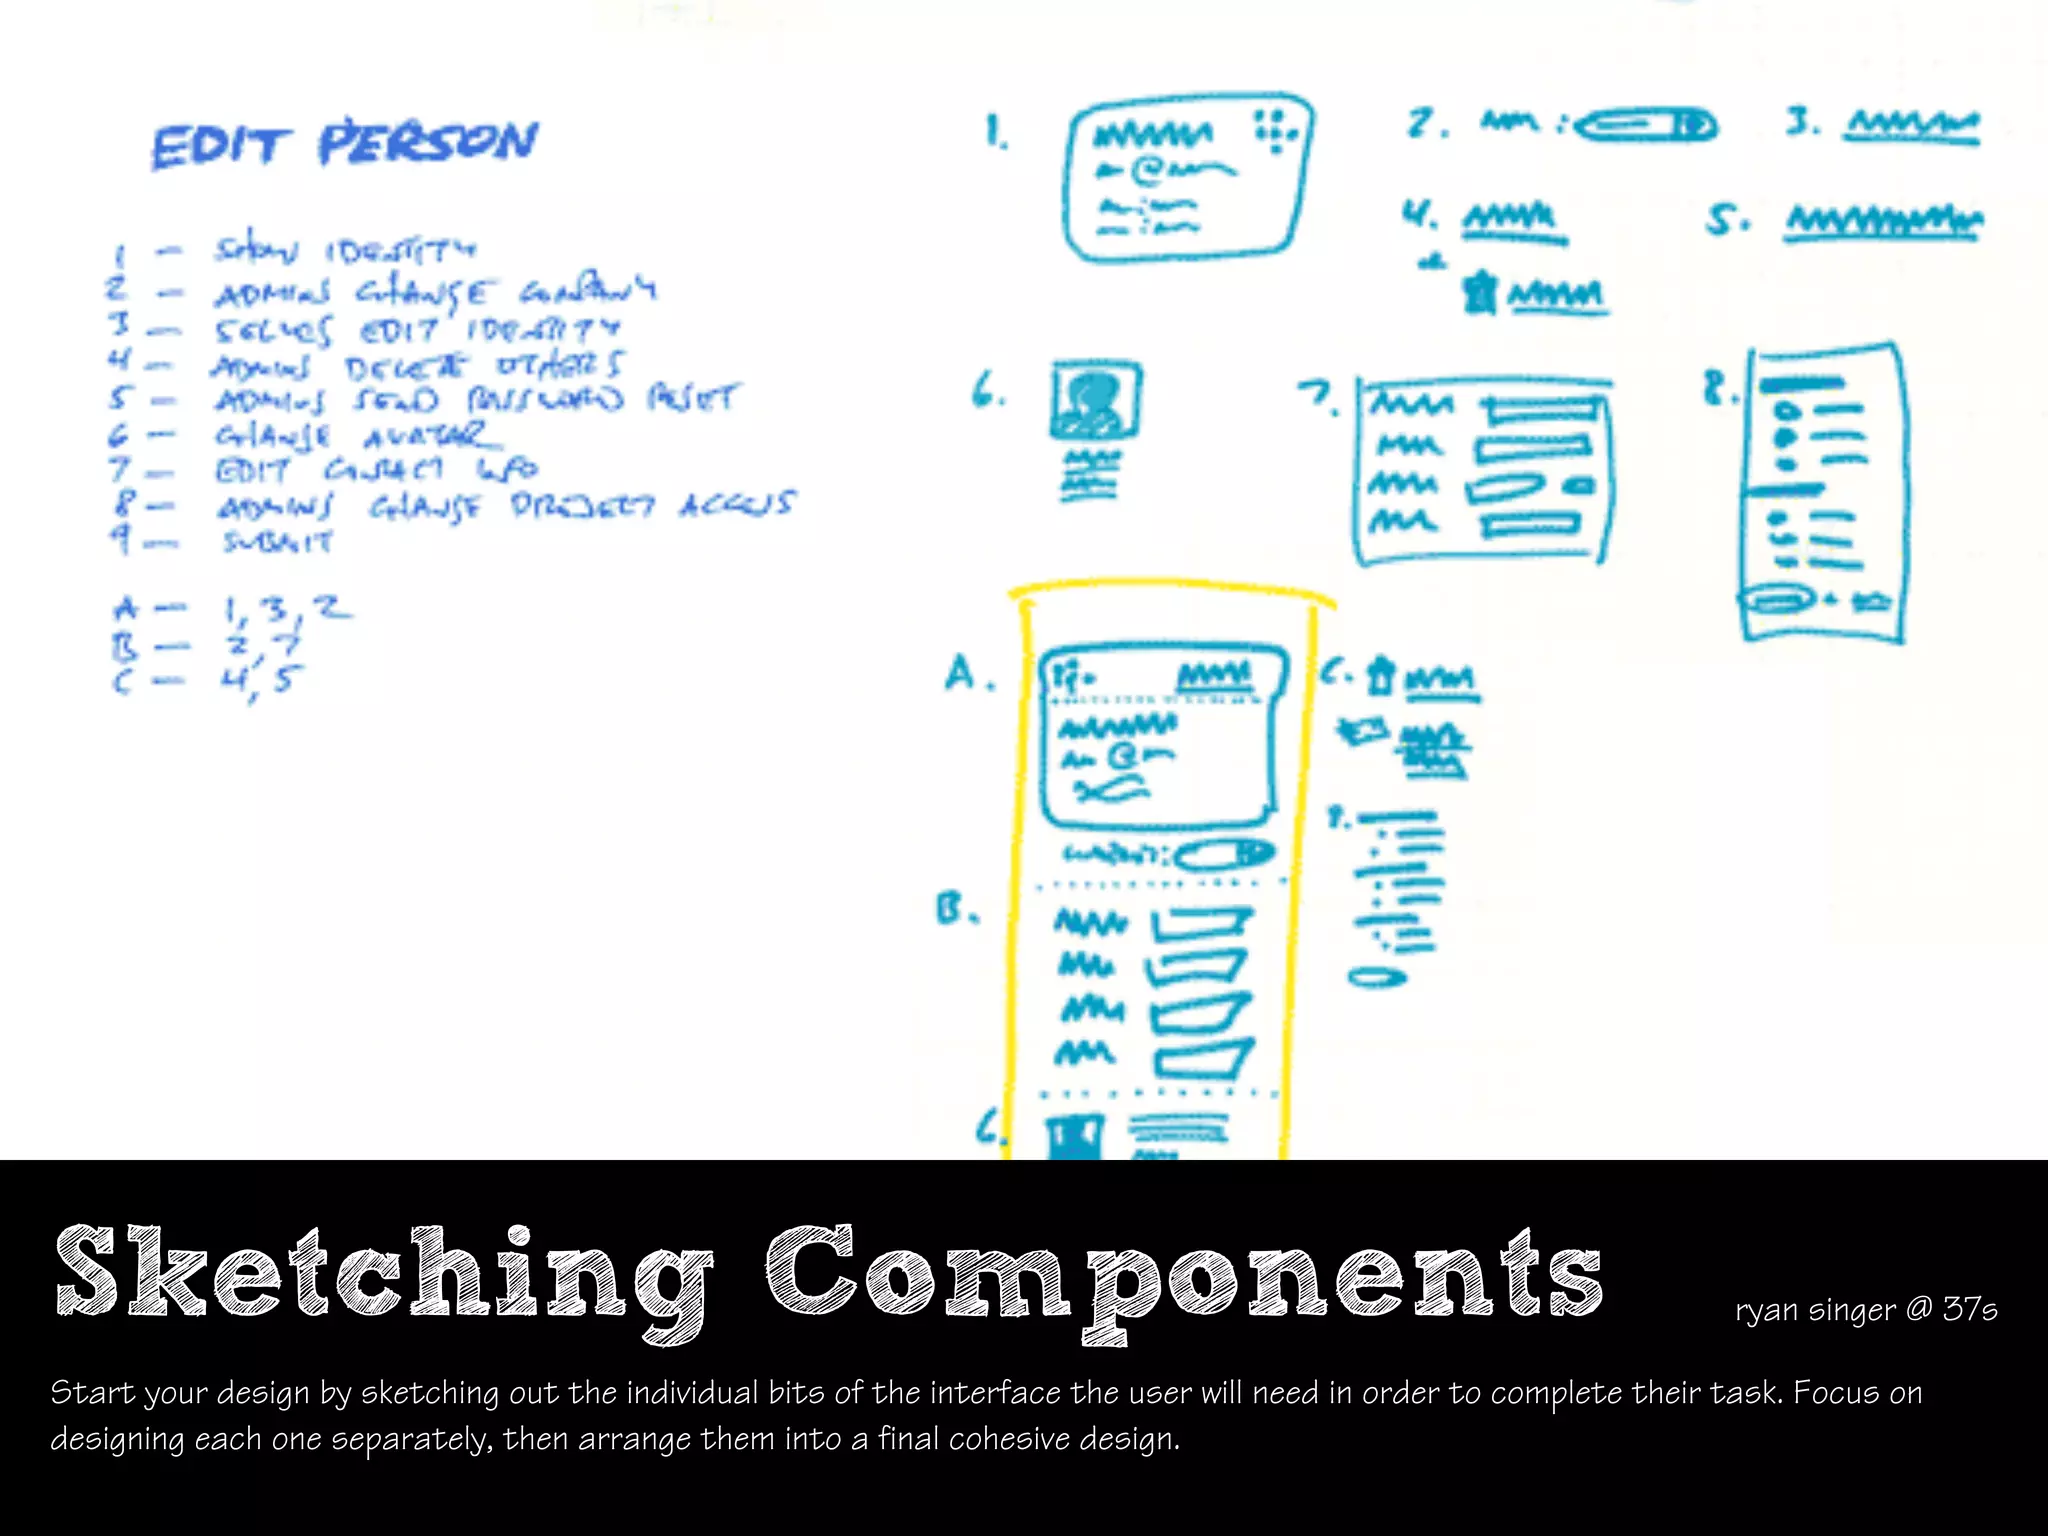 EDIT PERSON
1 — SHOW IDENTITY
2 — ADMINS CHANGE COMPANY
3 — SELVES EDIT IDENTITY
4 — ADMINS DELETE OTHERS
5 — ADMINS SEND PASSWORD RESET
6 — CHANGE AVATAR
7 — EDIT CONTACT INFO
8 — ADMINS CHANGE PROJECT ACCESS
9 — SUBMIT
A — 1, 3, 2
B — 2, 7
C — 4, 5
1.
2.
3.
4.
5.
6.
7.
8.
@
A.
C.
@
B.
6.
Sketching Components
ryan singer @ 37s
Start your design by sketching out the individual bits of the interface the user will need in order to complete their task. Focus on
designing each one separately, then arrange them into a final cohesive design.